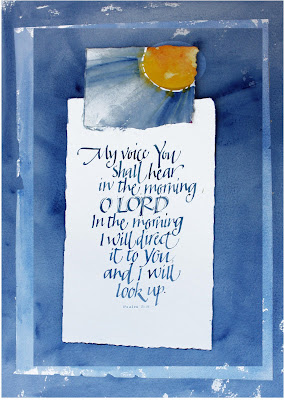 My voice You
shall hear
in the morning,
O LORD
In the morning
I will direct
it to You
and I will
look up.